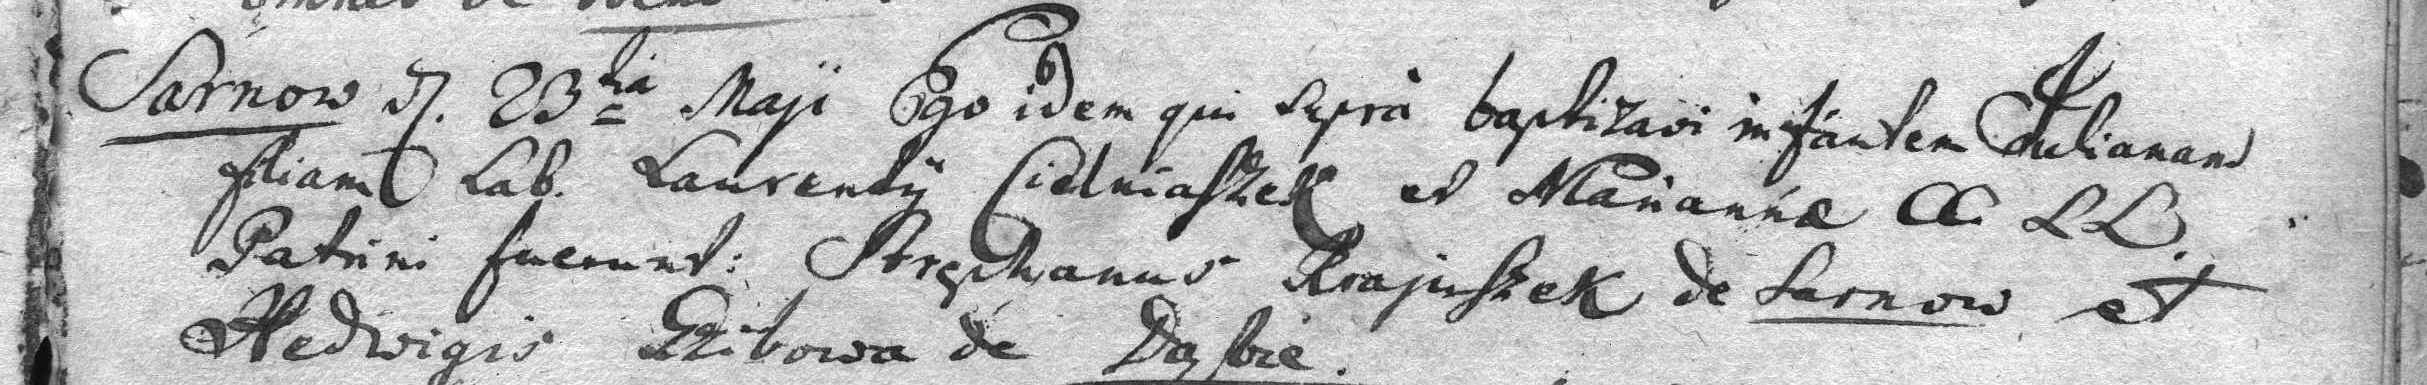 omnes de
Sarnow D. 23tia Maji Ego idem qui supra baptizavi infantem Julianam
filiam Lab. Laurentij Cielniaszek et Mariannæ CC. LL.
Patrini fuerunt: Stephanus Krajuszek de Sarnow et
Hedwigis Gzibowa de Dąbie.